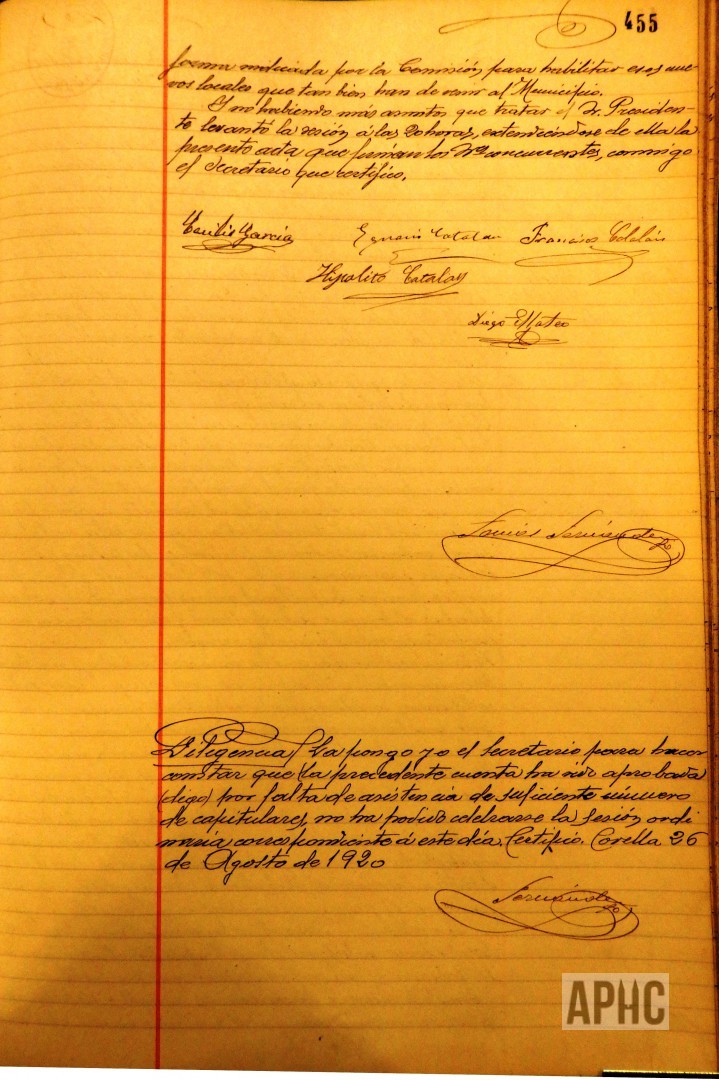 455
forma indicada por la Comisión para habilitar esos nue-
vos locales que tan bien han de venir al Municipio.
Y no habiendo más asuntos que tratar el Sr. Presiden-
te levantó la sesión á las 20 horas, extendiéndose de ella la
presente acta que firman los Sres concurrentes, conmigo
el Secretario que certifico.
García
Ignacio Catalán Francisco Catalán
Hipólito Catalán
Diego Mateo
Fernández
Diligencia/ La pongo yo el Secretario para hacer
constar que (la precedente cuenta ha sido aprobada
(digo) por falta de asistencia de suficiente número
de capitulares, no ha podido celebrarse la sesión ordi
naria correspondiente á este día. Certifico. Corella 26
de Agosto de 1920
Fernández
APHC